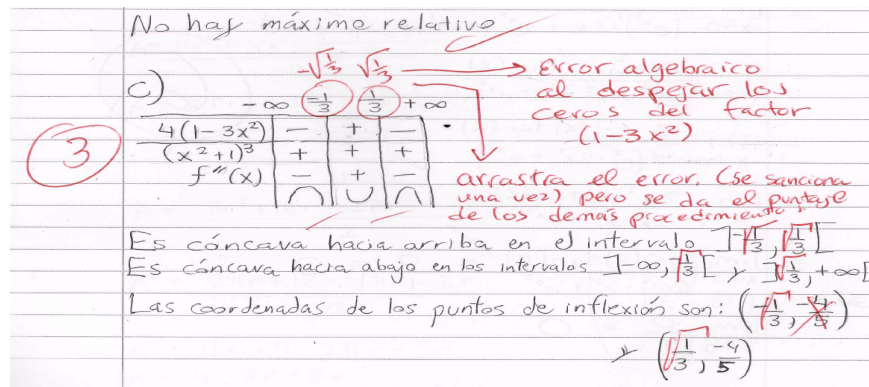 No hay máximo relativo
-√1/3 √1/3 → Error algebraico
c) al despejar los
-∞ -1/3 1/3 +∞ ceros del factor
4(1-3x²) - + - (1-3x²)
3 (x²+1)³ + + +
f"(x) - + - arrastra el error. (se sanciona
∩ ∪ ∩ una vez) pero se da el puntaje
de los demás procedimientos
Es cóncava hacia arriba en el intervalo ]-√1/3, √1/3[
Es cóncava hacia abajo en los intervalos ]-∞, √-1/3[ y ]√1/3, +∞[
Las coordenadas de los puntos de inflexión son: (√-1/3, -4/5)
y (√1/3, -4/5)